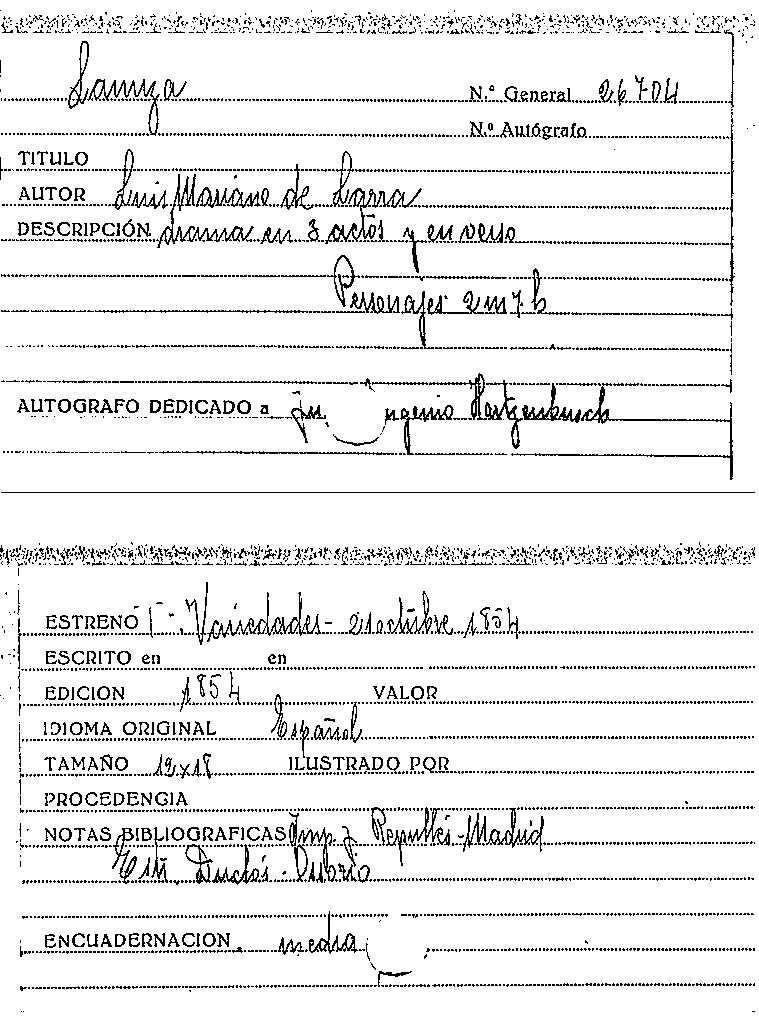 Lanuza
N.º General 26704
N.º Autógrafo
TITULO
AUTOR Luis Mariano de Larra
DESCRIPCIÓN drama en 3 actos y en verso
Personajes 2 m 7 h
AUTOGRAFO DEDICADO a Ju. Eugenio Hartzenbusch
ESTRENO T. Variedades - 21 octubre 1854
ESCRITO en en
EDICION 1854 VALOR
IDIOMA ORIGINAL Español
TAMAÑO 12x18 ILUSTRADO POR
PROCEDENCIA
NOTAS BIBLIOGRAFICAS Imp. J. Repullés - Madrid
Osorio
ENCUADERNACION. media